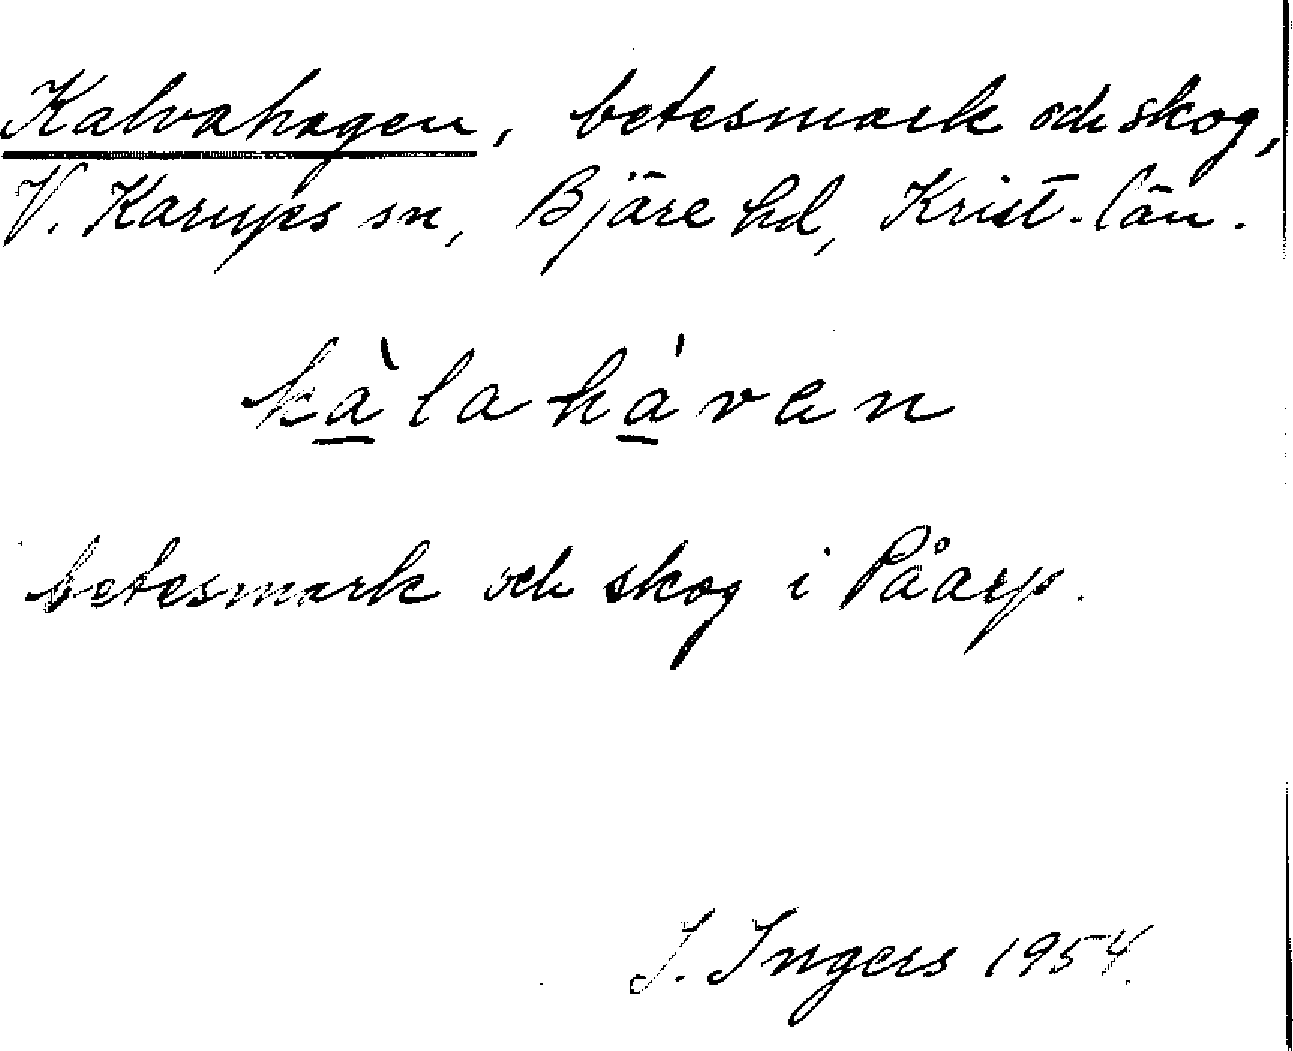 Kalvahagen, betesmark och skog,
V. Karups sn, Bjäre hd, Krist. län.
kà̱lahá̱ven
betesmark och skog i Påarp.
I. Ingers 1954.